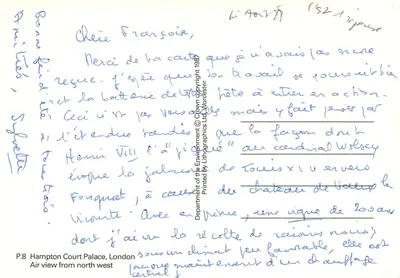 Li Août 99
Chère Françoise,
Merci de ta carte que je n'avais pas encore
reçue. J'espère que ton travail se poursuit bien
et la batterie de prête à entrer en action.
Ceci n'est pas mais y fait penser par
l'étendue que la façon dont
Henri VIII l'a "piqué" au cardinal Wolsey
évoque la jalousie de Louis XIV envers
Fouquet, à cause du château de Vaux le
Vicomte. Avec en prime, une vigne de 200 ans
dont j'ai vu la récolte de raisins noirs;
sous un climat peu favorable, elle est
maintenant d'un chauffage
central;
Bonne fin d'été à tous trois.
Amitiés, Sylvette
Department of the Environment © Crown copyright 1987
Printed by Lithographics Ltd, Worcester
P.8 Hampton Court Palace, London
Air view from north west